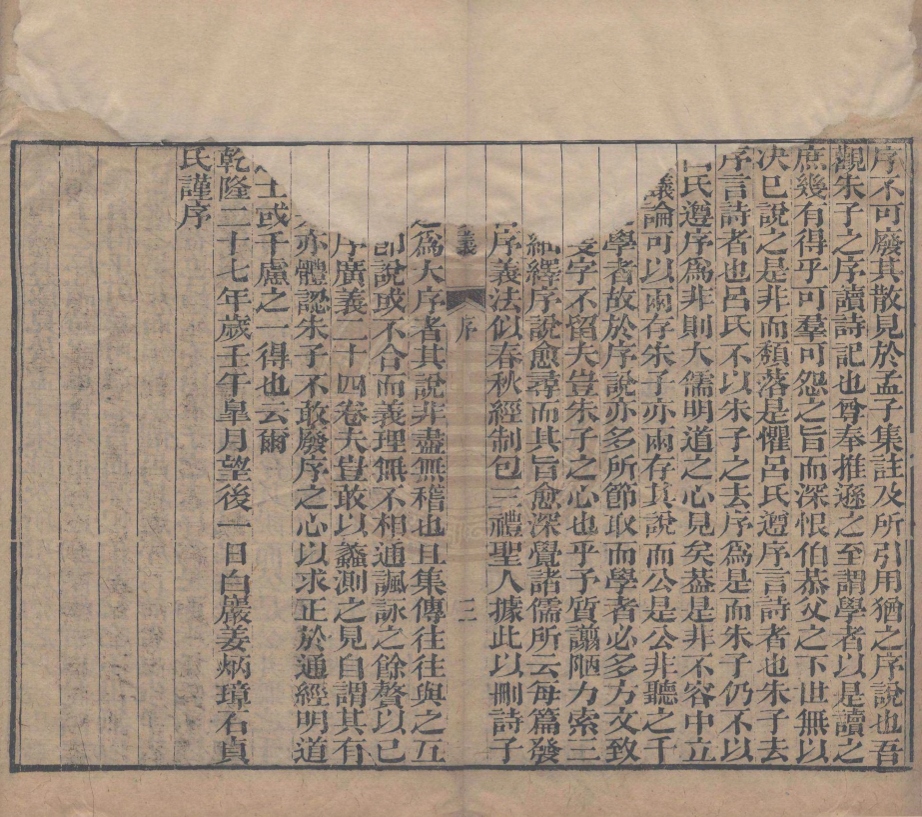 序不可廢其散見於孟子集註及所引用猶之序說也吾
觀朱子之序讀詩記也尊奉推遜之至謂學者以是讀之
庶幾有得乎可羣可怨之旨而深恨伯恭父之下世無以
决已說之是非而頽落是懼呂氏遵序言詩者也朱子去
序言詩者也呂氏不以朱子之去序為是而朱子仍不以
呂氏遵序為非則大儒明道之心見矣葢是非不容中立
議論可以兩存朱子亦兩存其說而公是公非聽之千
學者故於序說亦多所節取而學者必多方文致
文字不留夫豈朱子之心也乎予質譾陋力索三
紬繹序說愈尋而其旨愈深覺諸儒所云每篇發
序義法似春秋經制包三禮聖人據此以刪詩子
廣義
序
三
為大序者其說非盡無稽也且集傳往往與之互
卽說或不合而義理無不相通諷詠之餘贅以已
序廣義二十四卷夫豈敢以蠡測之見自謂其有
亦體認朱子不敢廢序之心以求正於通經明道
士或千慮之一得也云爾
乾隆二十七年歲壬午皐月望後一日白巖姜炳璋石貞
氏謹序